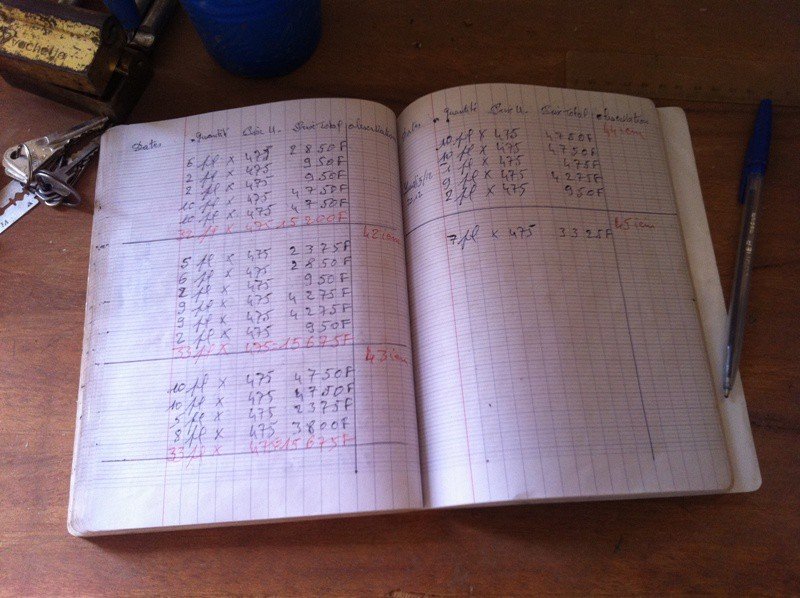 Dates Quantité Prix U. Prix Total Observation
6 pl x 475 2850F
2 pl x 475 950F
2 pl x 475 950F
10 pl x 475 4750F
10 pl x 475 4750F
32 pl x 475=15200F
42 iem
5 pl x 475 2375F
6 pl x 475 2850F
2 pl x 475 950F
9 pl x 475 4275F
9 pl x 475 4275F
2 pl x 475 950F
33 pl x 475=15675F
43 iem
10 pl x 475 4750F
10 pl x 475 4750F
5 pl x 475 2375F
8 pl x 475 3800F
33 pl x 475=15675F
Dates Quantité Prix U. Prix Total Observation
44 iem
10 pl x 475 4750F
10 pl x 475 4750F
1 pl x 475 475F
9 pl x 475 4275F
2 pl x 475 950F
45 iem
7 pl x 475 3325F